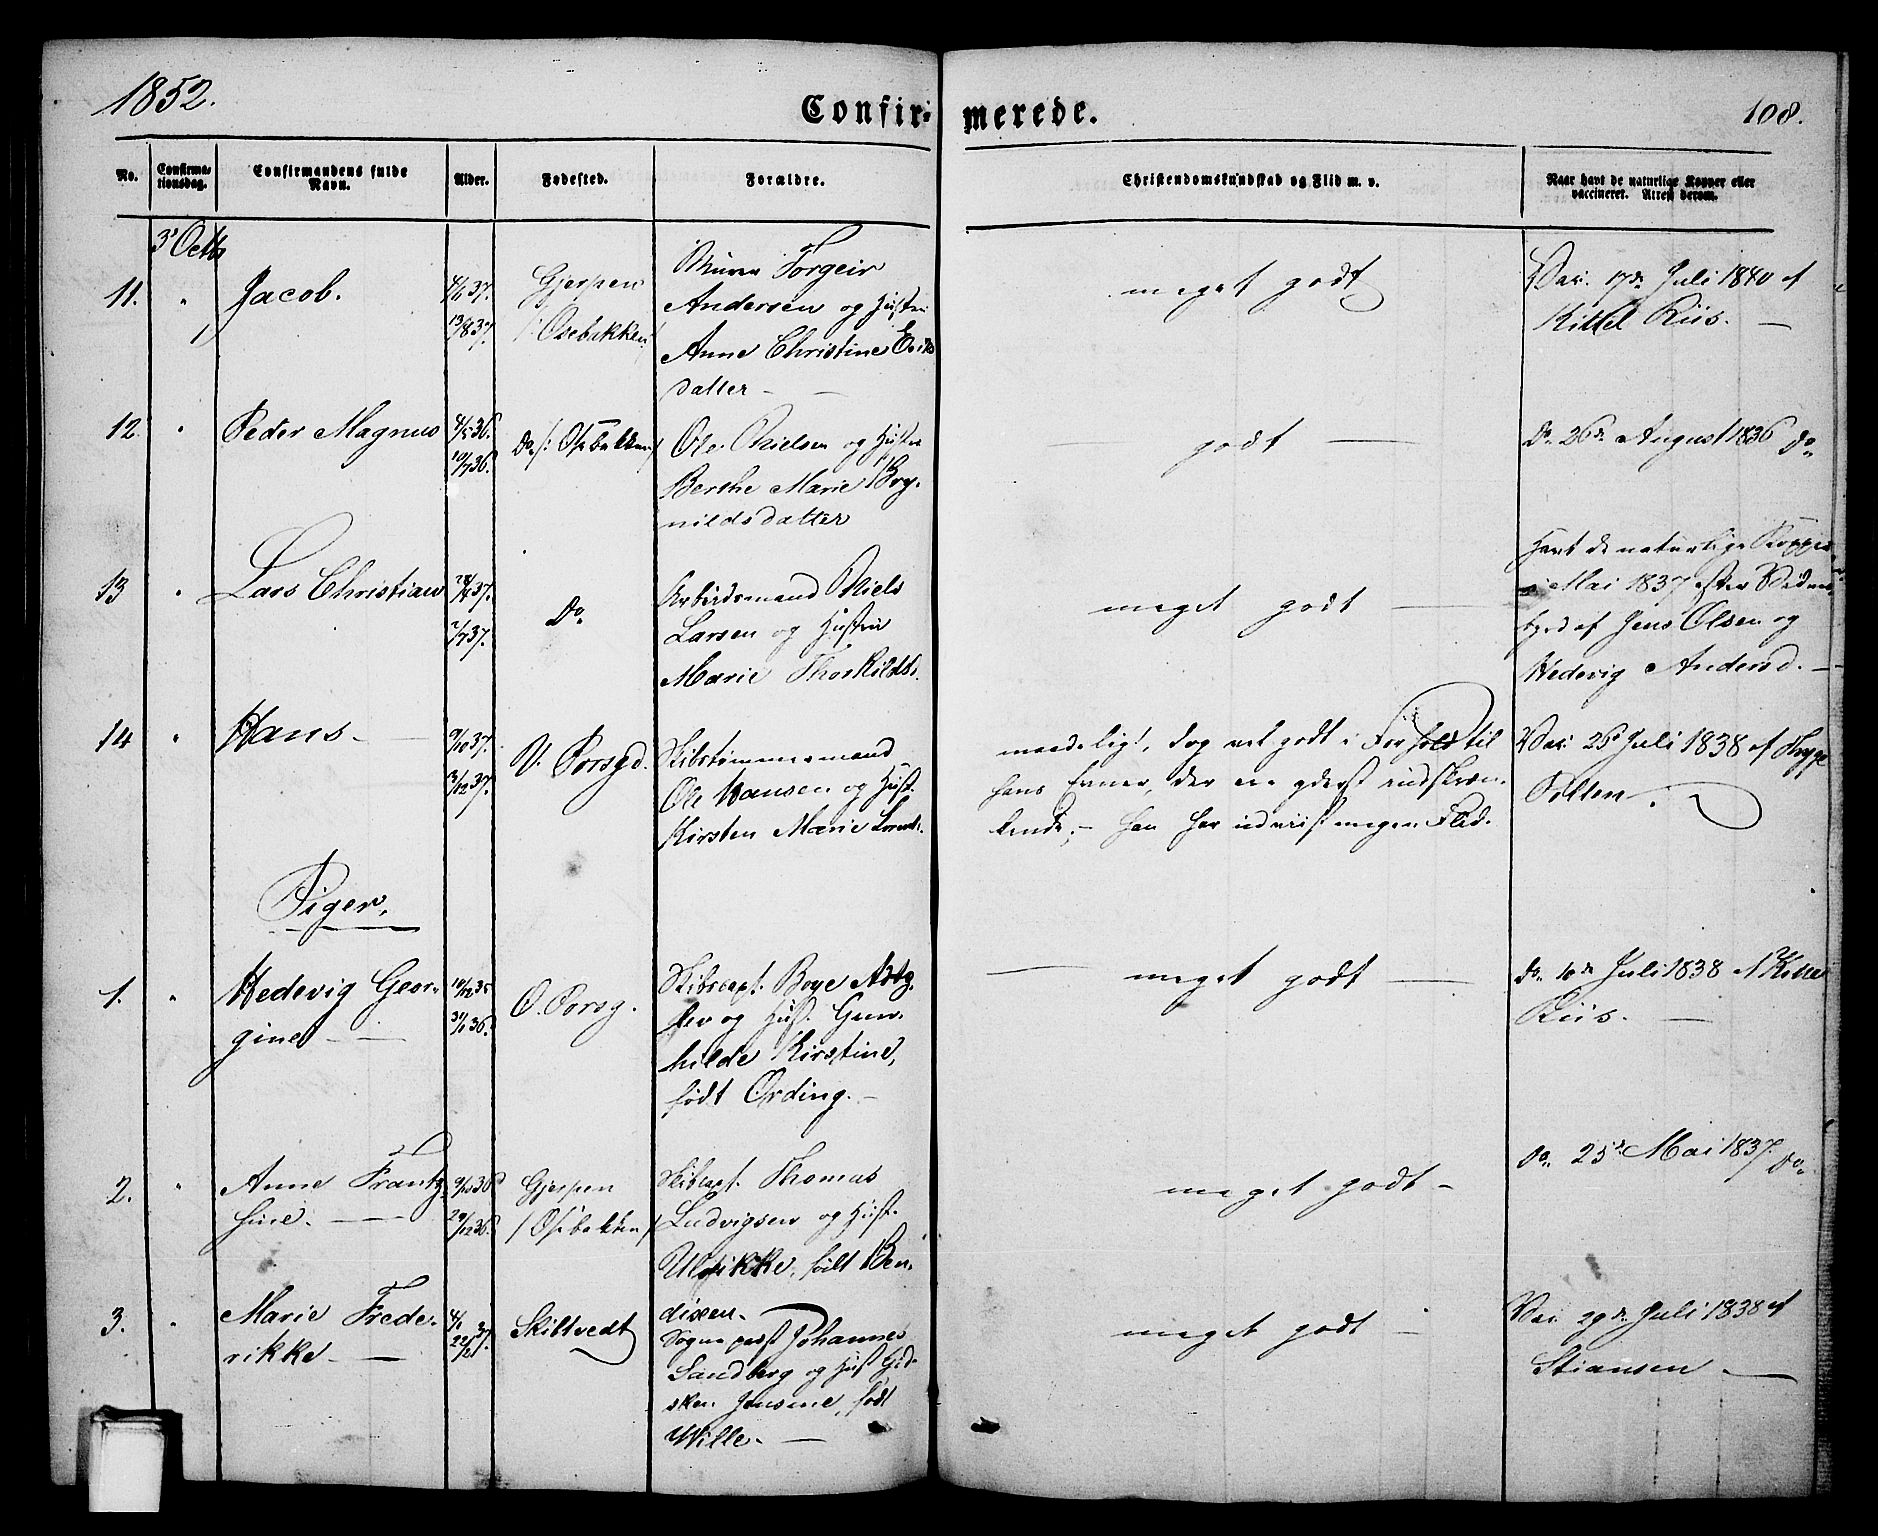 1852.
Confirmerede.
108.
No.
Confirmationsdag.
Confirmandens fulde Navn.
Alder.
Fødested.
Forældre.
Christendomskundskab og Flid m. v.
Naar havt de naturlige Kopper eller vaccineret. Attest derom.
3' Octb
11. " Jacob. 4/6 37. Gjerpen Torgeir meget godt Vac. 17de Juli 1840 af
13/8 37. /Osebakken/ Andersen og Hustru Kittel Riis. —
Anne Christine Eriks
datter —
12. " Peder Magnus 4/5 36. Do /: Osebakken/ Ole Nielsen og Hustru godt — Do 26de August 1836 Do
10/7 36. Berthe Marie Bry-
nildsdatter
Havt de naturlige Kopper
13 " Lars Christian 28/4 37. Do Arbeidsmand Niels meget godt — i Mai 1837 efter Vidnes-
2/7 37. Larsen og Hustru byrd af Jens Olsen og
Marie Thorkildsd. Hedevig Andersd. —
14 " Hans — 9/10 37. V. Porsgd. Skibstømmermand maadelig!, dog vel godt i Forhold til Vac. 26de Juli 1838 af Thygge
3/12 37. Ole Hansen og Hust. hans Evner, der ere yderst indskræn- Volten.
Kirsten Marie kende; — han har udviist megen Flid.
Piger,
1. " Hedevig Geor- 10/12 35 O. Porsg. Skibscapt. Boye — meget godt — Do 10de Juli 1838 af Kittel
gine — 31/1 36. lev og Hust. Gun- Riis. —
hilde Kirstine,
født Ording. —
2. " Anne Frantz- 9/10 36 Gjerpen Skibscapt. Thomas meget godt — Do 25de Mai 1837. Do
sine. — 29/12 36. /Osebakken/ Ludvigsen og Hust.
Ulrikke, født Ben-
dixen.
3. " Marie Frede- 4/1 37. Skiltvedt Sognepræst Johannes meget godt — Vac. 29de Juli 1838 af
rikke — 22/2 Sandberg og Hust Gid- Stiansen —
sken Jensine, født
Wille. —